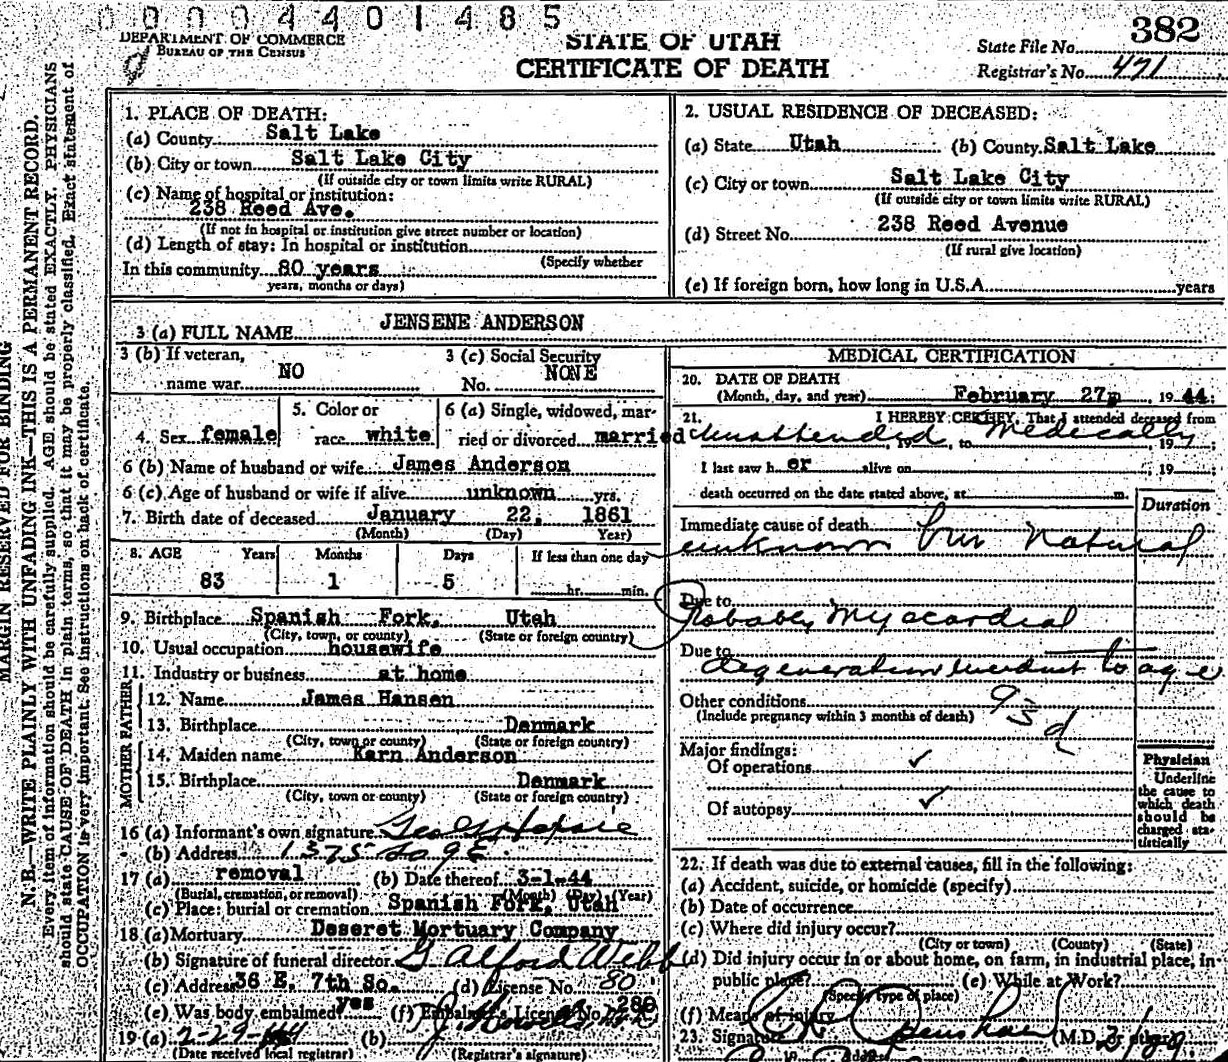 00004401485
DEPARTMENT OF COMMERCE
BUREAU OF THE CENSUS
STATE OF UTAH
CERTIFICATE OF DEATH
382
State File No.
Registrar's No. 471
MARGIN RESERVED FOR BINDING
N. B.—WRITE PLAINLY WITH UNFADING INK—THIS IS A PERMANENT RECORD.
Every item of information should be carefully supplied. AGE should be stated EXACTLY. PHYSICIANS
should state CAUSE OF DEATH in plain terms, so that it may be properly classified. Exact statement of
OCCUPATION is very important. See instructions on back of certificate.
1. PLACE OF DEATH:
(a) County Salt Lake
(b) City or town Salt Lake City
(If outside city or town limits write RURAL)
(c) Name of hospital or institution:
238 Reed Ave.
(If not in hospital or institution give street number or location)
(d) Length of stay: In hospital or institution
(Specify whether
In this community 80 years
years, months or days)
2. USUAL RESIDENCE OF DECEASED:
(a) State Utah (b) County Salt Lake
(c) City or town Salt Lake City
(If outside city or town limits write RURAL)
(d) Street No. 238 Reed Avenue
(If rural give location)
(e) If foreign born, how long in U.S.A. years
3 (a) FULL NAME JENSENE ANDERSON
3 (b) If veteran,
name war NO
3 (c) Social Security
No. NONE
4. Sex female
5. Color or
race white
6 (a) Single, widowed, mar-
ried or divorced married
6 (b) Name of husband or wife James Anderson
6 (c) Age of husband or wife if alive unknown yrs.
7. Birth date of deceased January 22, 1861
(Month) (Day) Year)
8. AGE Years Months Days If less than one day
83 1 5 hr. min.
9. Birthplace Spanish Fork, Utah
(City, town, or county) (State or foreign country)
10. Usual occupation housewife
11. Industry or business at home
FATHER
12. Name James Hansen
13. Birthplace Denmark
(City, town or county) (State or foreign country)
MOTHER
14. Maiden name Karn Anderson
15. Birthplace Denmark
(City, town or county) (State or foreign country)
16 (a) Informant's own signature
(b) Address 1375 So 9 E
17 (a) removal (b) Date thereof 3-1-44
(Burial, cremation, or removal) (Month) (Day) (Year)
(c) Place: burial or cremation Spanish Fork, Utah
18 (a) Mortuary Deseret Mortuary Company
(b) Signature of funeral director G Alford Webb
(c) Address 36 E. 7th So. (d) License No. 80
(e) Was body embalmed? yes (f) Embalmer's License No. 280
19 (a) 2-29-44 (b)
(Date received local registrar) (Registrar's signature)
MEDICAL CERTIFICATION
20. DATE OF DEATH
(Month, day, and year) February 27, 1944
21. I HEREBY CERTIFY, That I attended deceased from
unattended, 19 , to Medically, 19
I last saw her alive on , 19
death occurred on the date stated above, at m.
Duration
Immediate cause of death
unknown but natural
Due to
Probably Myocardial
Due to
degeneration incident to age
Other conditions
(Include pregnancy within 3 months of death)
93 d
Major findings:
Of operations ✓
Of autopsy ✓
Physician
Underline
the cause to
which death
should be
charged sta-
tistically
22. If death was due to external causes, fill in the following:
(a) Accident, suicide, or homicide (specify)
(b) Date of occurrence
(c) Where did injury occur?
(City or town) (County) (State)
(d) Did injury occur in or about home, on farm, in industrial place, in-
public place? (e) While at Work?
(Specify type of place)
(f) Means of injury
23. Signature (M.D.